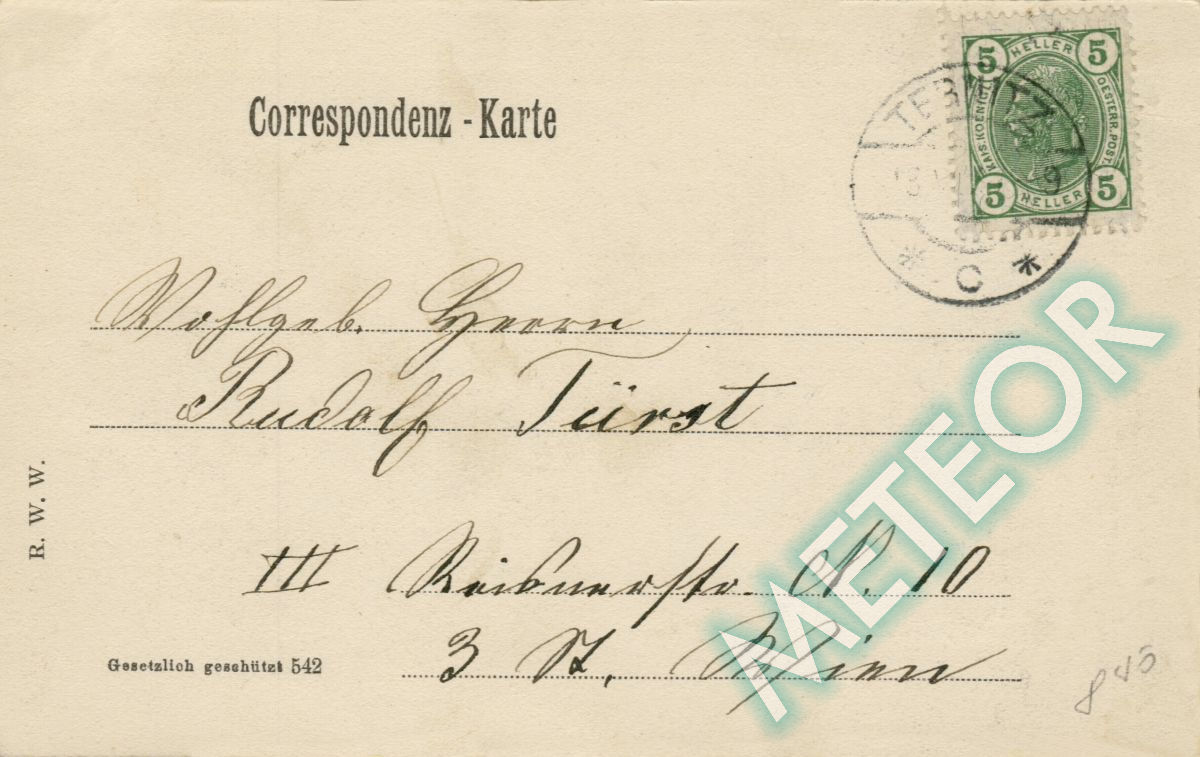 Correspondenz - Karte
5 HELLER 5
KAIS. KOENIGL. OESTERR. POST.
5 HELLER 5
TERNITZ
9
* C *
Wohlgeb. Herrn
Rudolf Fürst
III Reisnerstr. N. 10
3 St. Wien
R. W. W.
Gesetzlich geschützt 542
METEOR
845